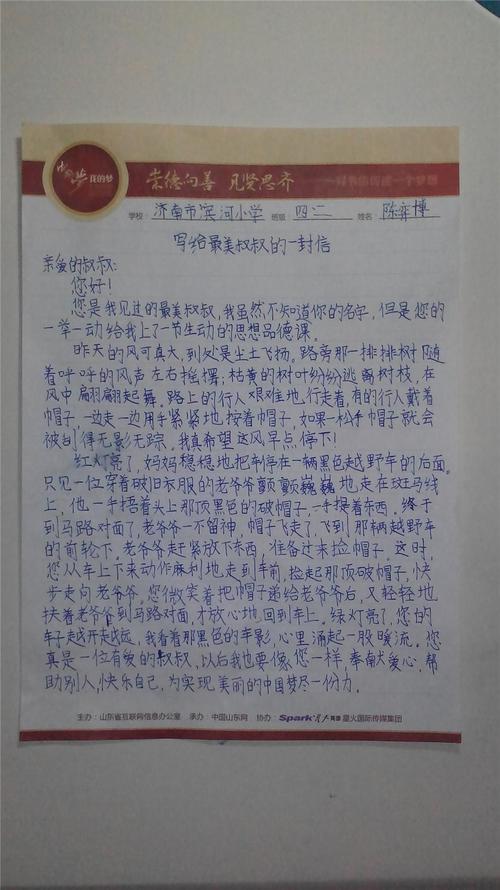 我的梦
崇德向善 见贤思齐
学校: 济南市滨河小学 班级 四二 姓名 陈弈博
写给最美叔叔的一封信
亲爱的叔叔:
您好!
您是我见过的最美叔叔,我虽然不知道你的名字,但是您的
一举一动给我上了一节生动的思想品德课。
昨天的风可真大,到处是尘土飞扬,路旁那一排排树随
着呼呼的风声左右摇摆,枯黄的树叶纷纷逃离树枝,在
风中翩翩起舞。路上的行人艰难地行走着,有的行人戴着
帽子,一边走一边用手紧紧地按着帽子,如果一松手帽子就会
被刮得无影无踪。我真希望这风早点停下!
红灯亮了,妈妈稳稳地把车停在一辆黑色越野车的后面。
只见一位穿着破旧衣服的老爷爷颤颤巍巍地走在斑马线
上,他一手捂着头上那顶黑色的破帽子,一手提着东西。终于
到马路对面了,老爷爷一不留神,帽子飞走了,飞到那辆越野车
的前轮下。老爷爷赶紧放下东西,准备过来捡帽子。这时,
您从车上下来动作麻利地走到车前,捡起那顶破帽子,快
步走向老爷爷,您微笑着把帽子递给老爷爷后,又轻轻地
扶着老爷爷到马路对面,才放心地回到车上。绿灯亮了,您的
车子越开越远,我看着那黑色的车影,心里涌起一股暖流。您
真是一位有爱的叔叔,以后我也要像您一样,奉献爱心,帮
助别人,快乐自己,为实现美丽的中国梦尽一份力。
主办:山东省互联网信息办公室 承办:中国山东网 协办:Spark 星火国际传媒集团